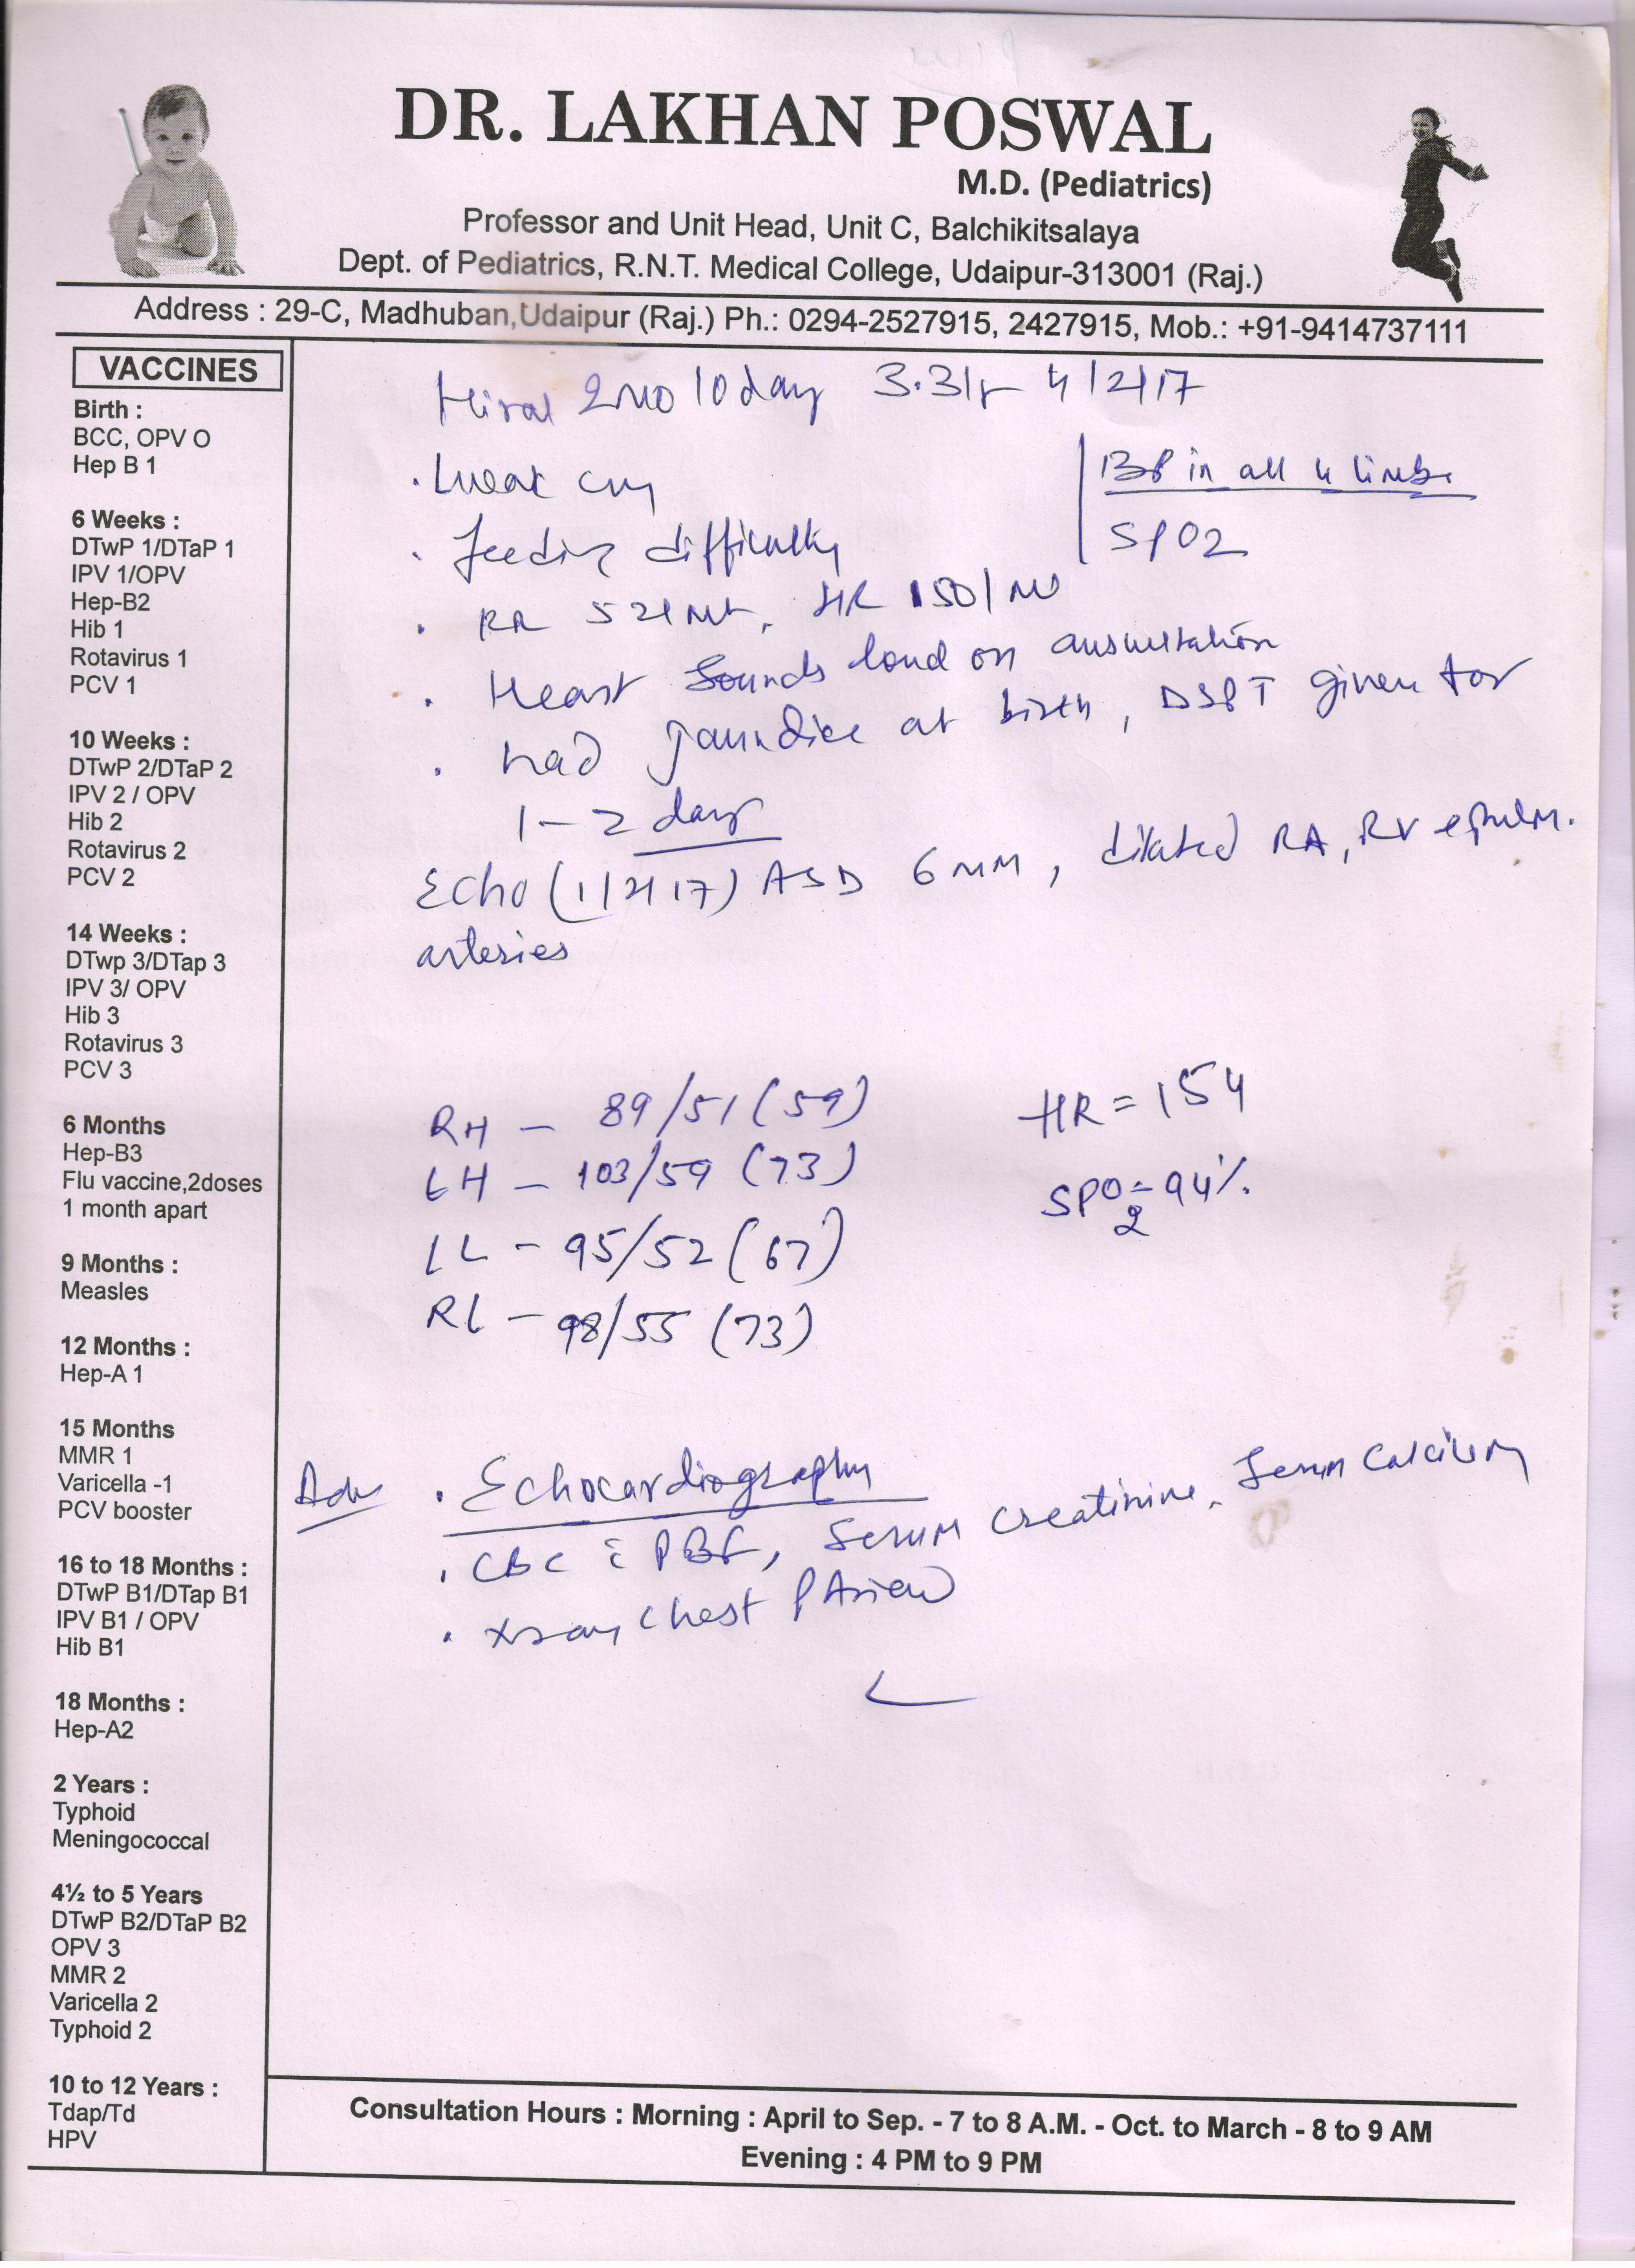 DR. LAKHAN POSWAL
M.D. (Pediatrics)
Professor and Unit Head, Unit C, Balchikitsalaya
Dept. of Pediatrics, R.N.T. Medical College, Udaipur-313001 (Raj.)
Address : 29-C, Madhuban,Udaipur (Raj.) Ph.: 0294-2527915, 2427915, Mob.: +91-9414737111
VACCINES
Birth :
BCC, OPV O
Hep B 1
6 Weeks :
DTwP 1/DTaP 1
IPV 1/OPV
Hep-B2
Hib 1
Rotavirus 1
PCV 1
10 Weeks :
DTwP 2/DTaP 2
IPV 2 / OPV
Hib 2
Rotavirus 2
PCV 2
14 Weeks :
DTwp 3/DTap 3
IPV 3/ OPV
Hib 3
Rotavirus 3
PCV 3
6 Months
Hep-B3
Flu vaccine,2doses
1 month apart
9 Months :
Measles
12 Months :
Hep-A 1
15 Months
MMR 1
Varicella -1
PCV booster
16 to 18 Months :
DTwP B1/DTap B1
IPV B1 / OPV
Hib B1
18 Months :
Hep-A2
2 Years :
Typhoid
Meningococcal
4½ to 5 Years
DTwP B2/DTaP B2
OPV 3
MMR 2
Varicella 2
Typhoid 2
10 to 12 Years :
Tdap/Td
HPV
Hiral 2mo 10 day 4/2/17
. Weak cry
. feeding difficulty
BP in all 4 limbs
SPO2
. RR 52/mt, HR 150/m
. Heart sounds loud on auscultation
. had jaundice at birth, DSPT given for
1-2 days
Echo (1/2/17) ASD 6mm, dilated RA, RV & pulm.
arteries
RH - 89/51 (59)
LH - 103/59 (73)
LL - 95/52 (67)
RL - 98/55 (73)
HR = 154
SPO2 = 94%
Adv . Echocardiography
. CBC c̄ PBF, Serum Creatinine, Serum Calcium
. Xray Chest PA view
Consultation Hours : Morning : April to Sep. - 7 to 8 A.M. - Oct. to March - 8 to 9 AM
Evening : 4 PM to 9 PM